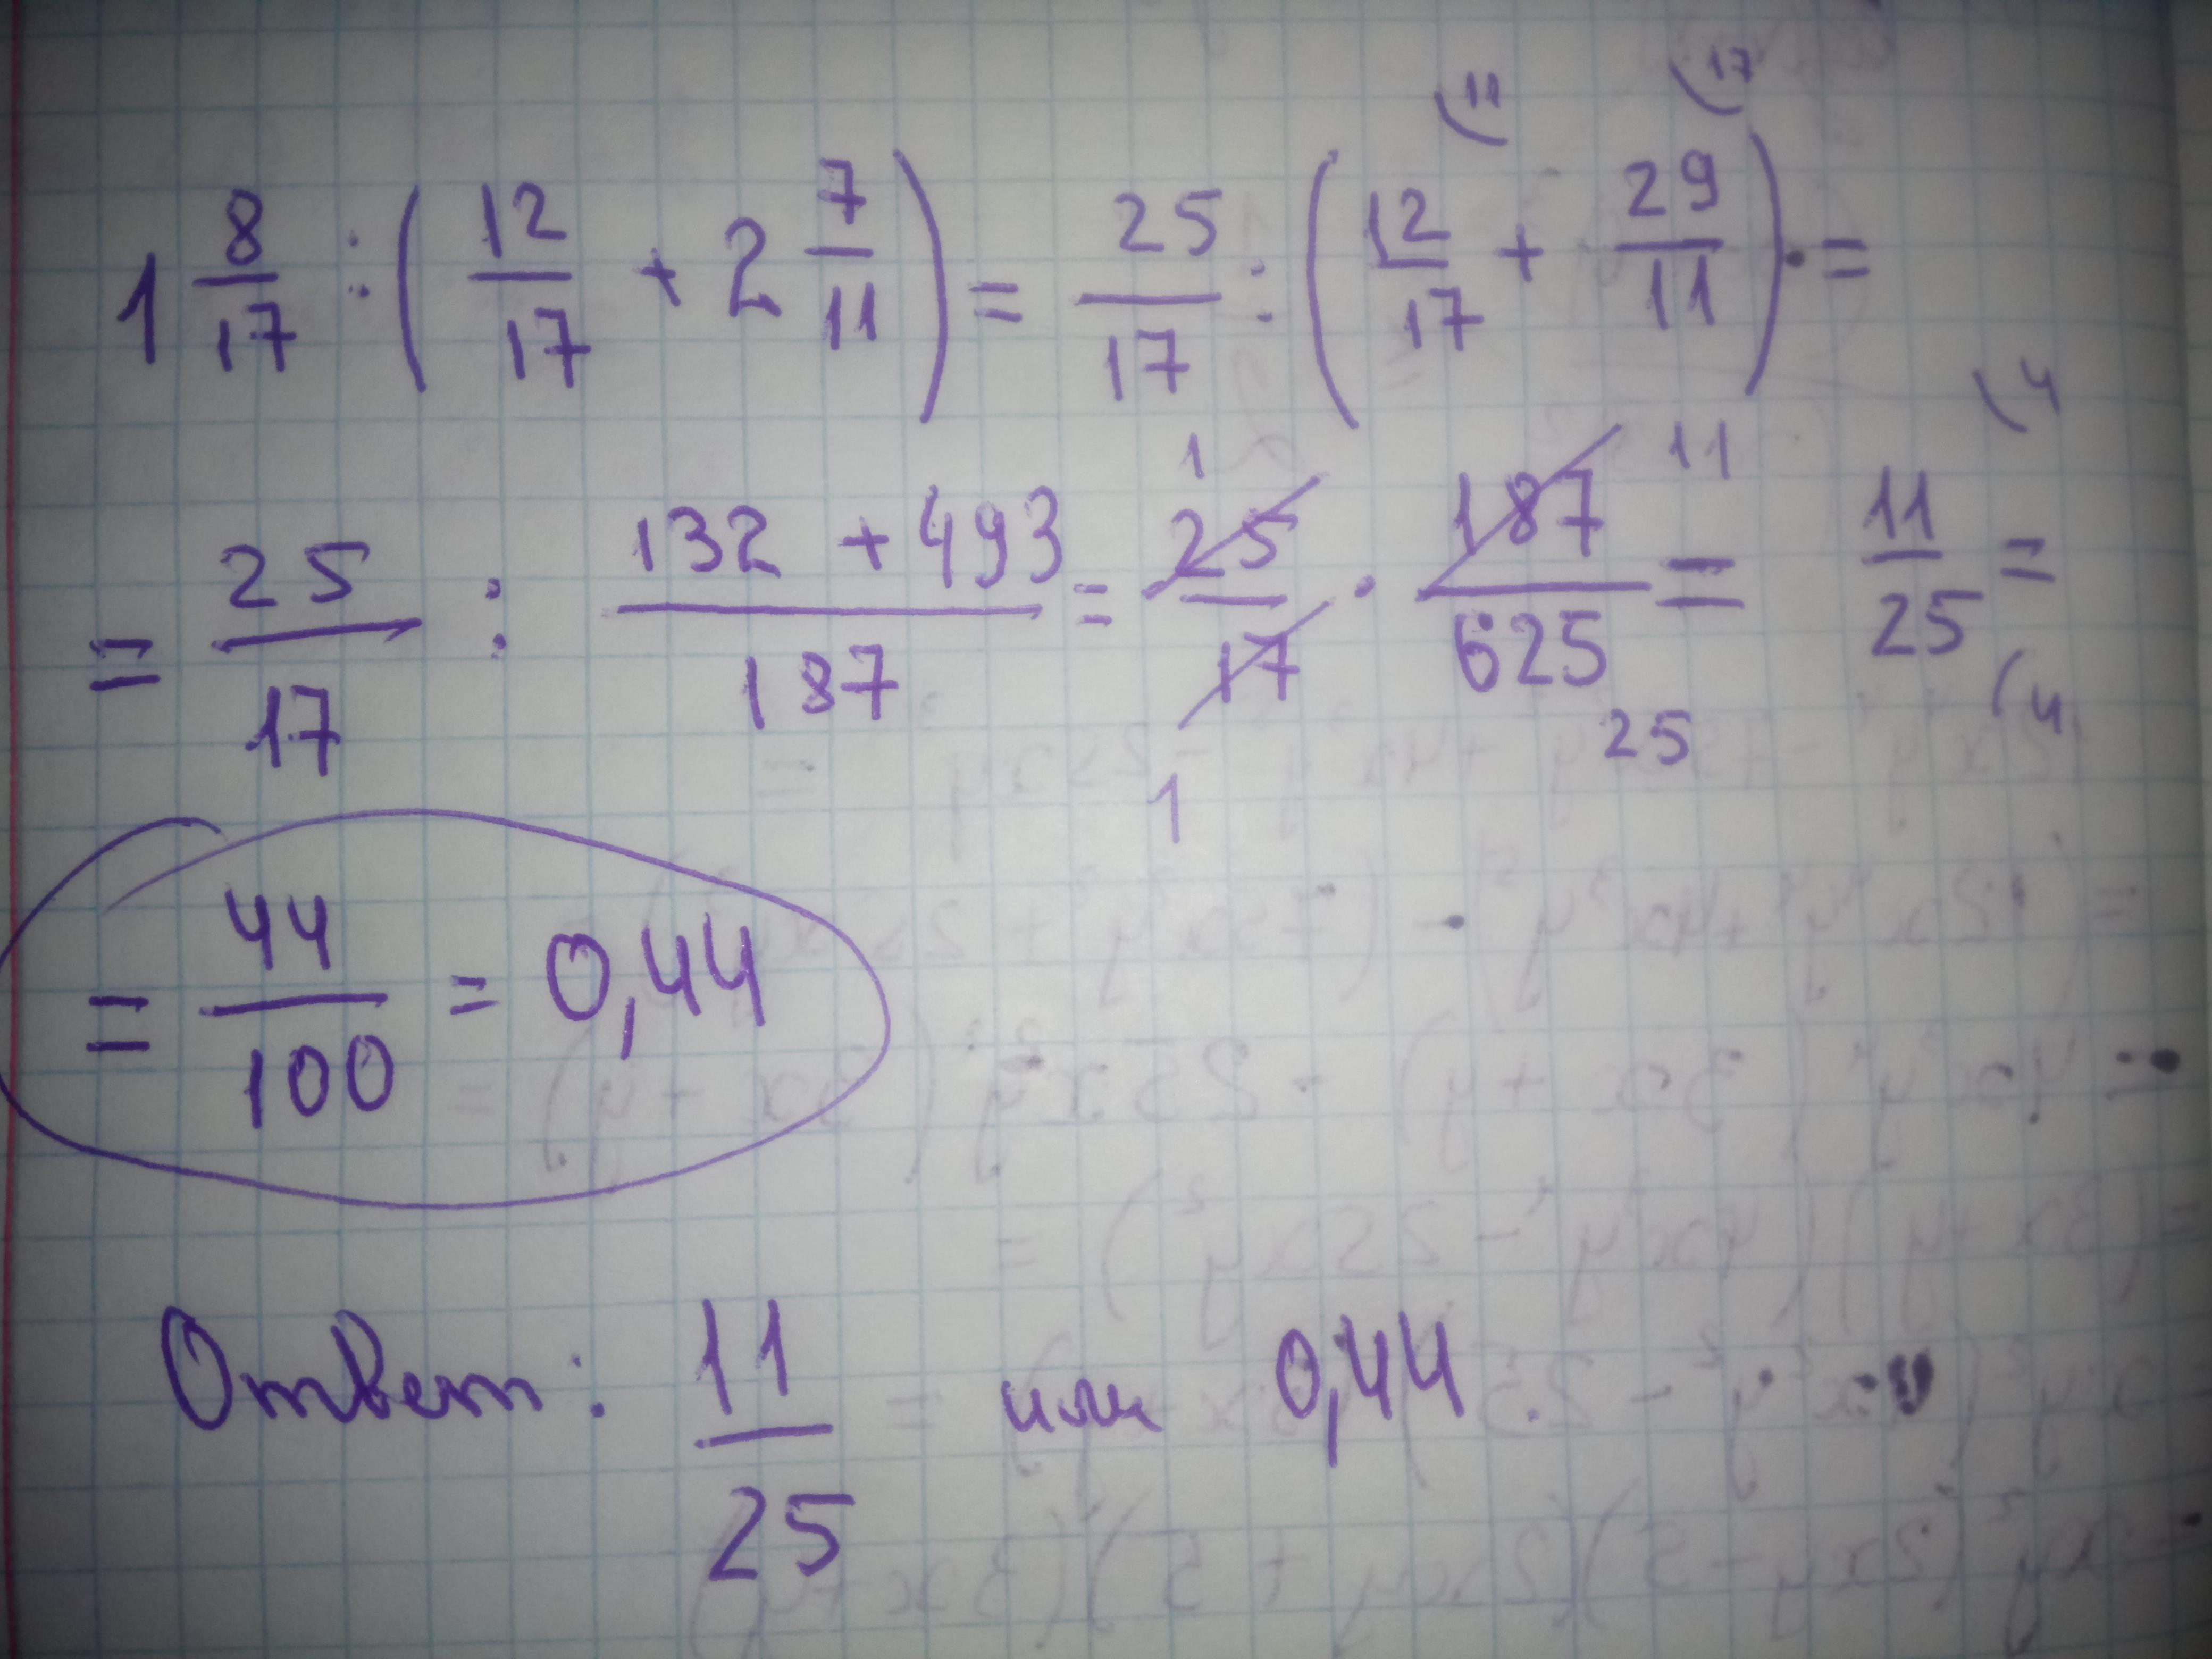 1 8/17 : (12/17 + 2 7/11) = 25/17 : (12/17 \11 + 29/11 \17) · =
= 25/17 : (132 + 493)/187 = 25/17 1 1 · 187/625 11 25 = 11/25 \4 (4 =
= 44/100 = 0,44
Ответ: 11/25 или 0,44